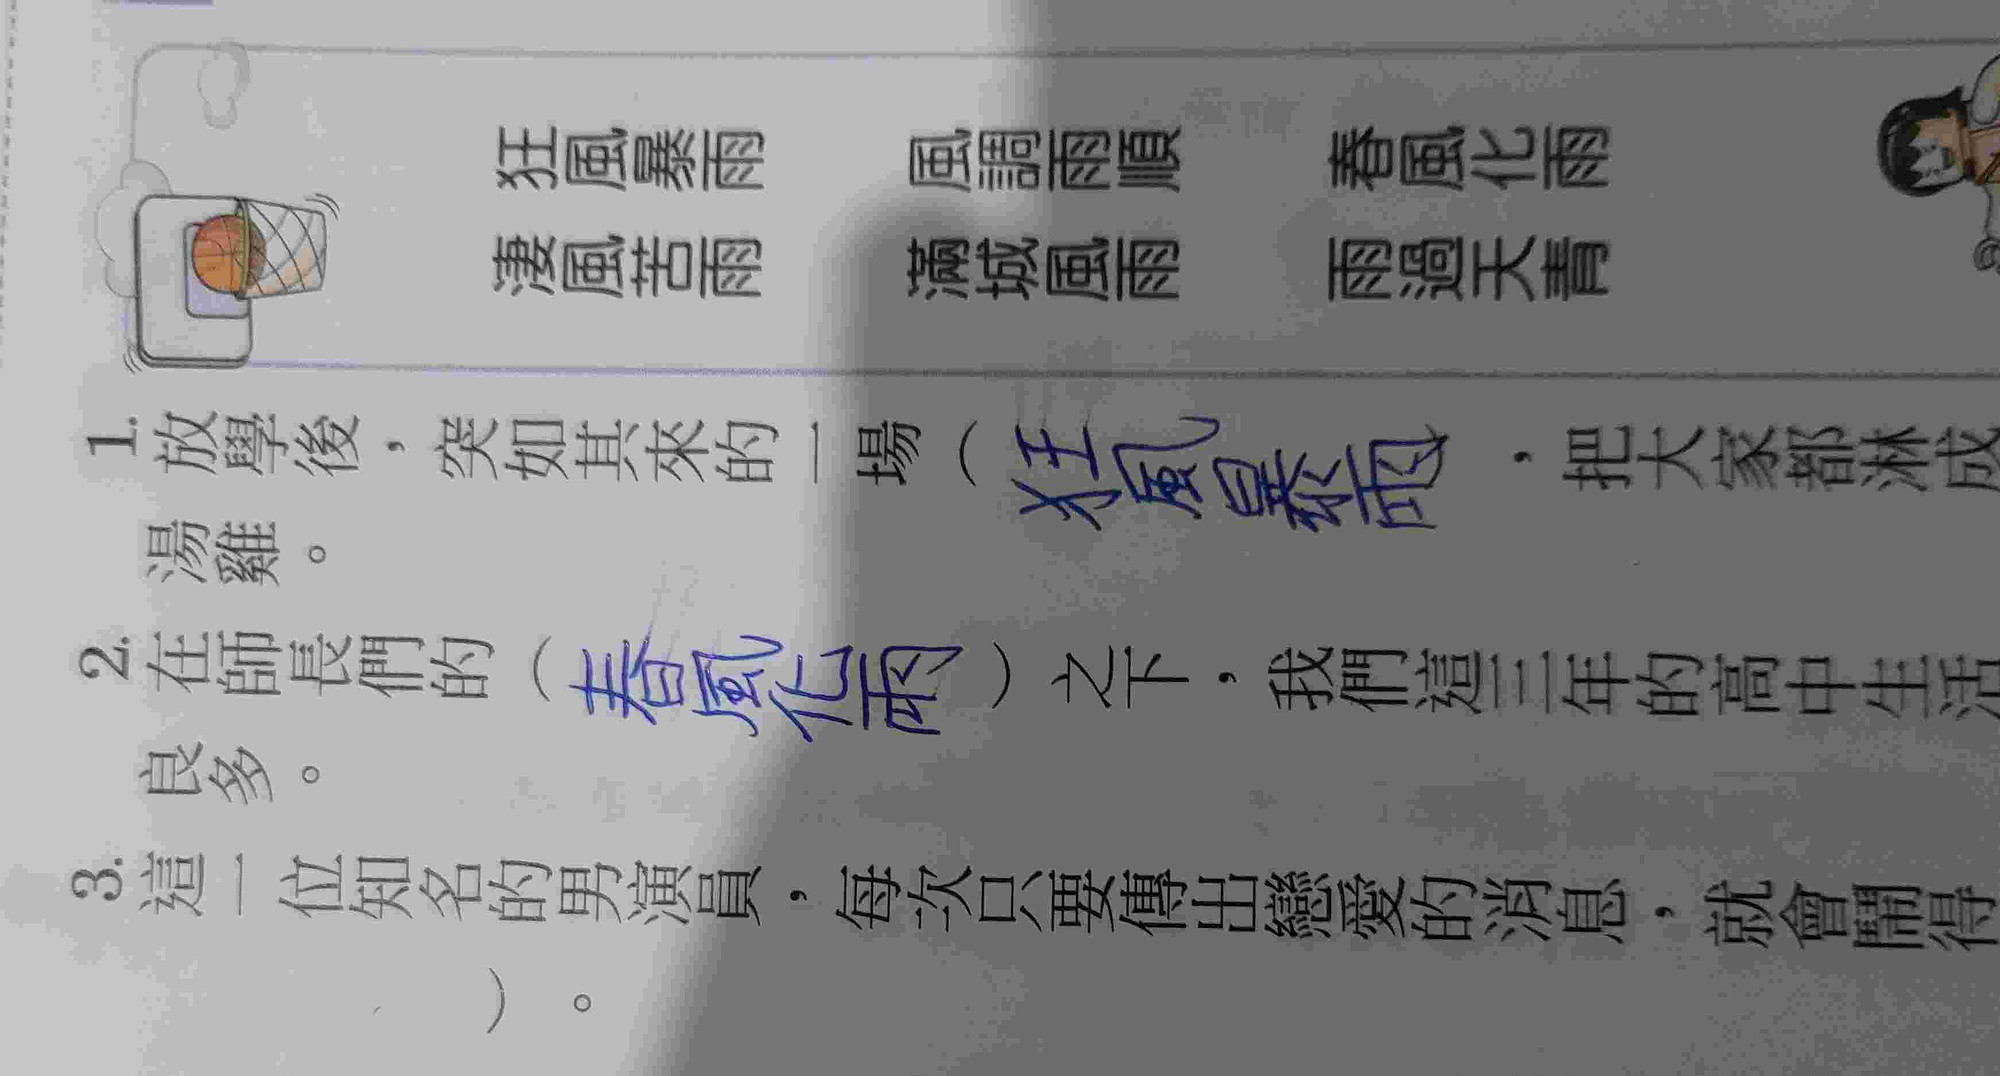 狂風暴雨 風調雨順 春風化雨
淒風苦雨 滿城風雨 雨過天青
1. 放學後，突如其來的一場（狂風暴雨，把大家都淋成
湯雞。
2. 在師長們的（春風化雨）之下，我們這三年的高中生活
良多。
3. 這一位知名的男演員，每次只要傳出戀愛的消息，就會鬧得
）。